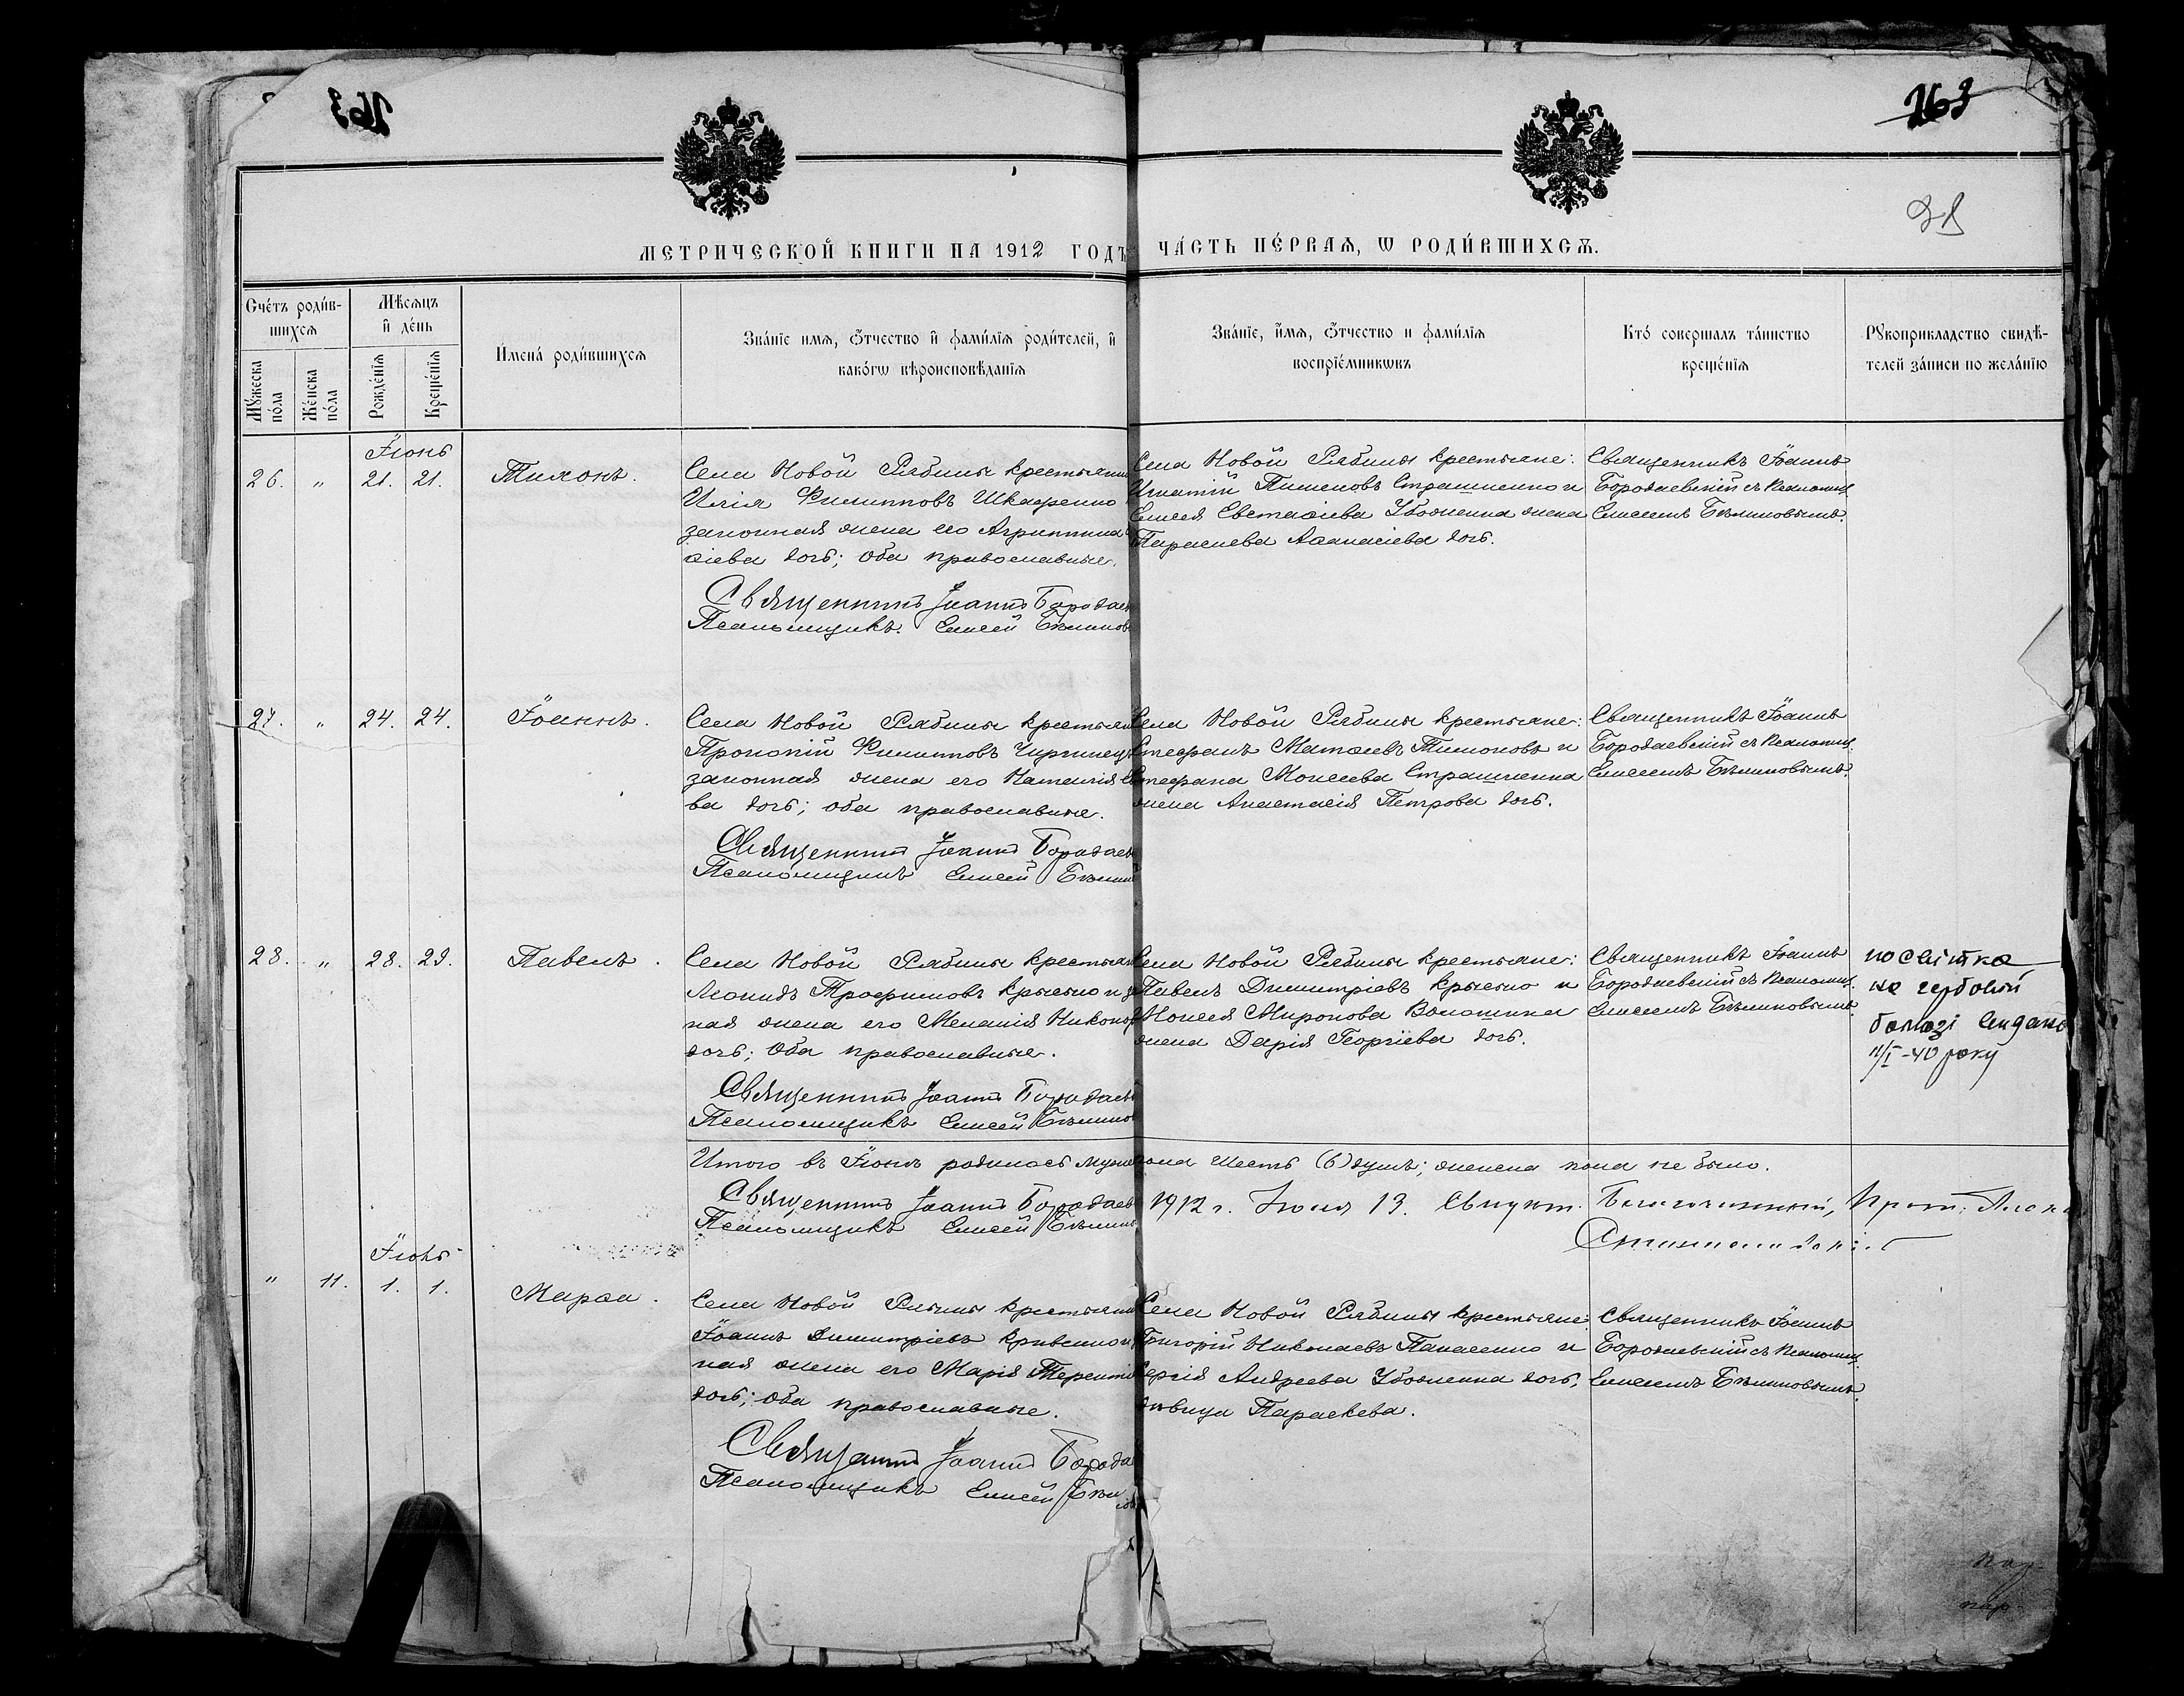 163
163
38
МЕТРИЧЕСКОЙ КНИГИ НА 1912 ГОДЪ
ЧА́СТЬ ПЕ́РВАѦ, Ѡ РОДИ́ВШИХСѦ.
Сче́тъ роди́в-
шихсѧ
Мѣ́сѧцъ
и҆ де́нь
Мꙋ́жеска по́ла
Же́нска по́ла
Рожде́нїѧ
Креще́нїѧ
И҆мена̀ роди́вшихсѧ
Зва́нїе имѧ, ѻ҆́тчество и҆ фами́лїѧ роди́телей, и҆
како́гѡ вѣроисповѣ́данїѧ
Зва́нїе, и҆́мѧ, ѻ҆́тчество и фами́лїѧ
воспрїе́мникѡвъ
Кто́ соверша́лъ та́инство
креще́нїѧ
Рꙋкоприкладство свидѣ́-
телей за́писи по жела́нїю
Іюнь
26. " 21. 21. Тихонъ.
Села Новой Рябины крестьянин
Илія Филипповъ Шкаренко
законная жена его Агриппина
сіева дочь; Оба православные.
Священникъ Іоаннъ Бородаев
Псаломщикъ Елисей Бѣлинов
Села Новой Рябины крестьяне:
Игнатій Пименовъ Страшненко и
Елисея Евстафіева Убоженка жена
Параскева Аѳанасіева дочь.
Священникъ Іоаннъ
Бородаевскій съ псаломщ.
Елисеемъ Бѣлиновымъ.
27. " 24. 24. Іоаннъ.
Села Новой Рябины крестьян
Прокопій Филипповъ
законная жена его Наталія
ва дочь; оба православные.
Священникъ Іоаннъ Бородаев
Псаломщикъ Елисей Бѣлин
Села Новой Рябины крестьяне:
Стефанъ Матѳіевъ Тимоновъ и
Стефана Моисеева Страшненка
жена Анастасія Петрова дочь.
Священникъ Іоаннъ
Бородаевскій съ псаломщ.
Елисеемъ Бѣлиновымъ.
28. " 28. 29. Павелъ.
Села Новой Рябины крестьян
Леонидъ Трофимовъ Крысько и за
ная жена его Меланія Никонор
дочь; Оба православные.
Священникъ Іоаннъ Бородаев
Псаломщикъ Елисей Бѣлинов
Села Новой Рябины крестьяне:
Павелъ Димитріевъ Крысько и
Моисея Миронова Волошина
жена Дарія Георгіева дочь.
Священникъ Іоаннъ
Бородаевскій съ псаломщ.
Елисеемъ Бѣлиновымъ.
посвітка
на гербовій
бомазі видана
11/I-40 року
Итого въ Іюнѣ родилось муже пола шесть (6) душъ; женска пола не было.
Священникъ Іоаннъ Бородаев
Псаломщикъ Елисей Бѣлинов
1912 г. Іюля 13. Свидѣт. Благочинный, Прот.
Іюль
" 11. 1. 1. Марѳа.
Села Новой Рябины крестьянин
Іоаннъ Димитріевъ
ная жена его Марія Терентіе
дочь; Оба православные.
Священникъ ІоаннъBorода
Псаломщикъ Елисей Бѣли
Села Новой Рябины крестьяне:
Григорій Николаевъ Панасенко и
Сергія Андреева Убоженка дочь,
дѣвица Параскева.
Священникъ Іоаннъ
Бородаевскій съ псаломщ.
Елисеемъ Бѣлиновымъ.